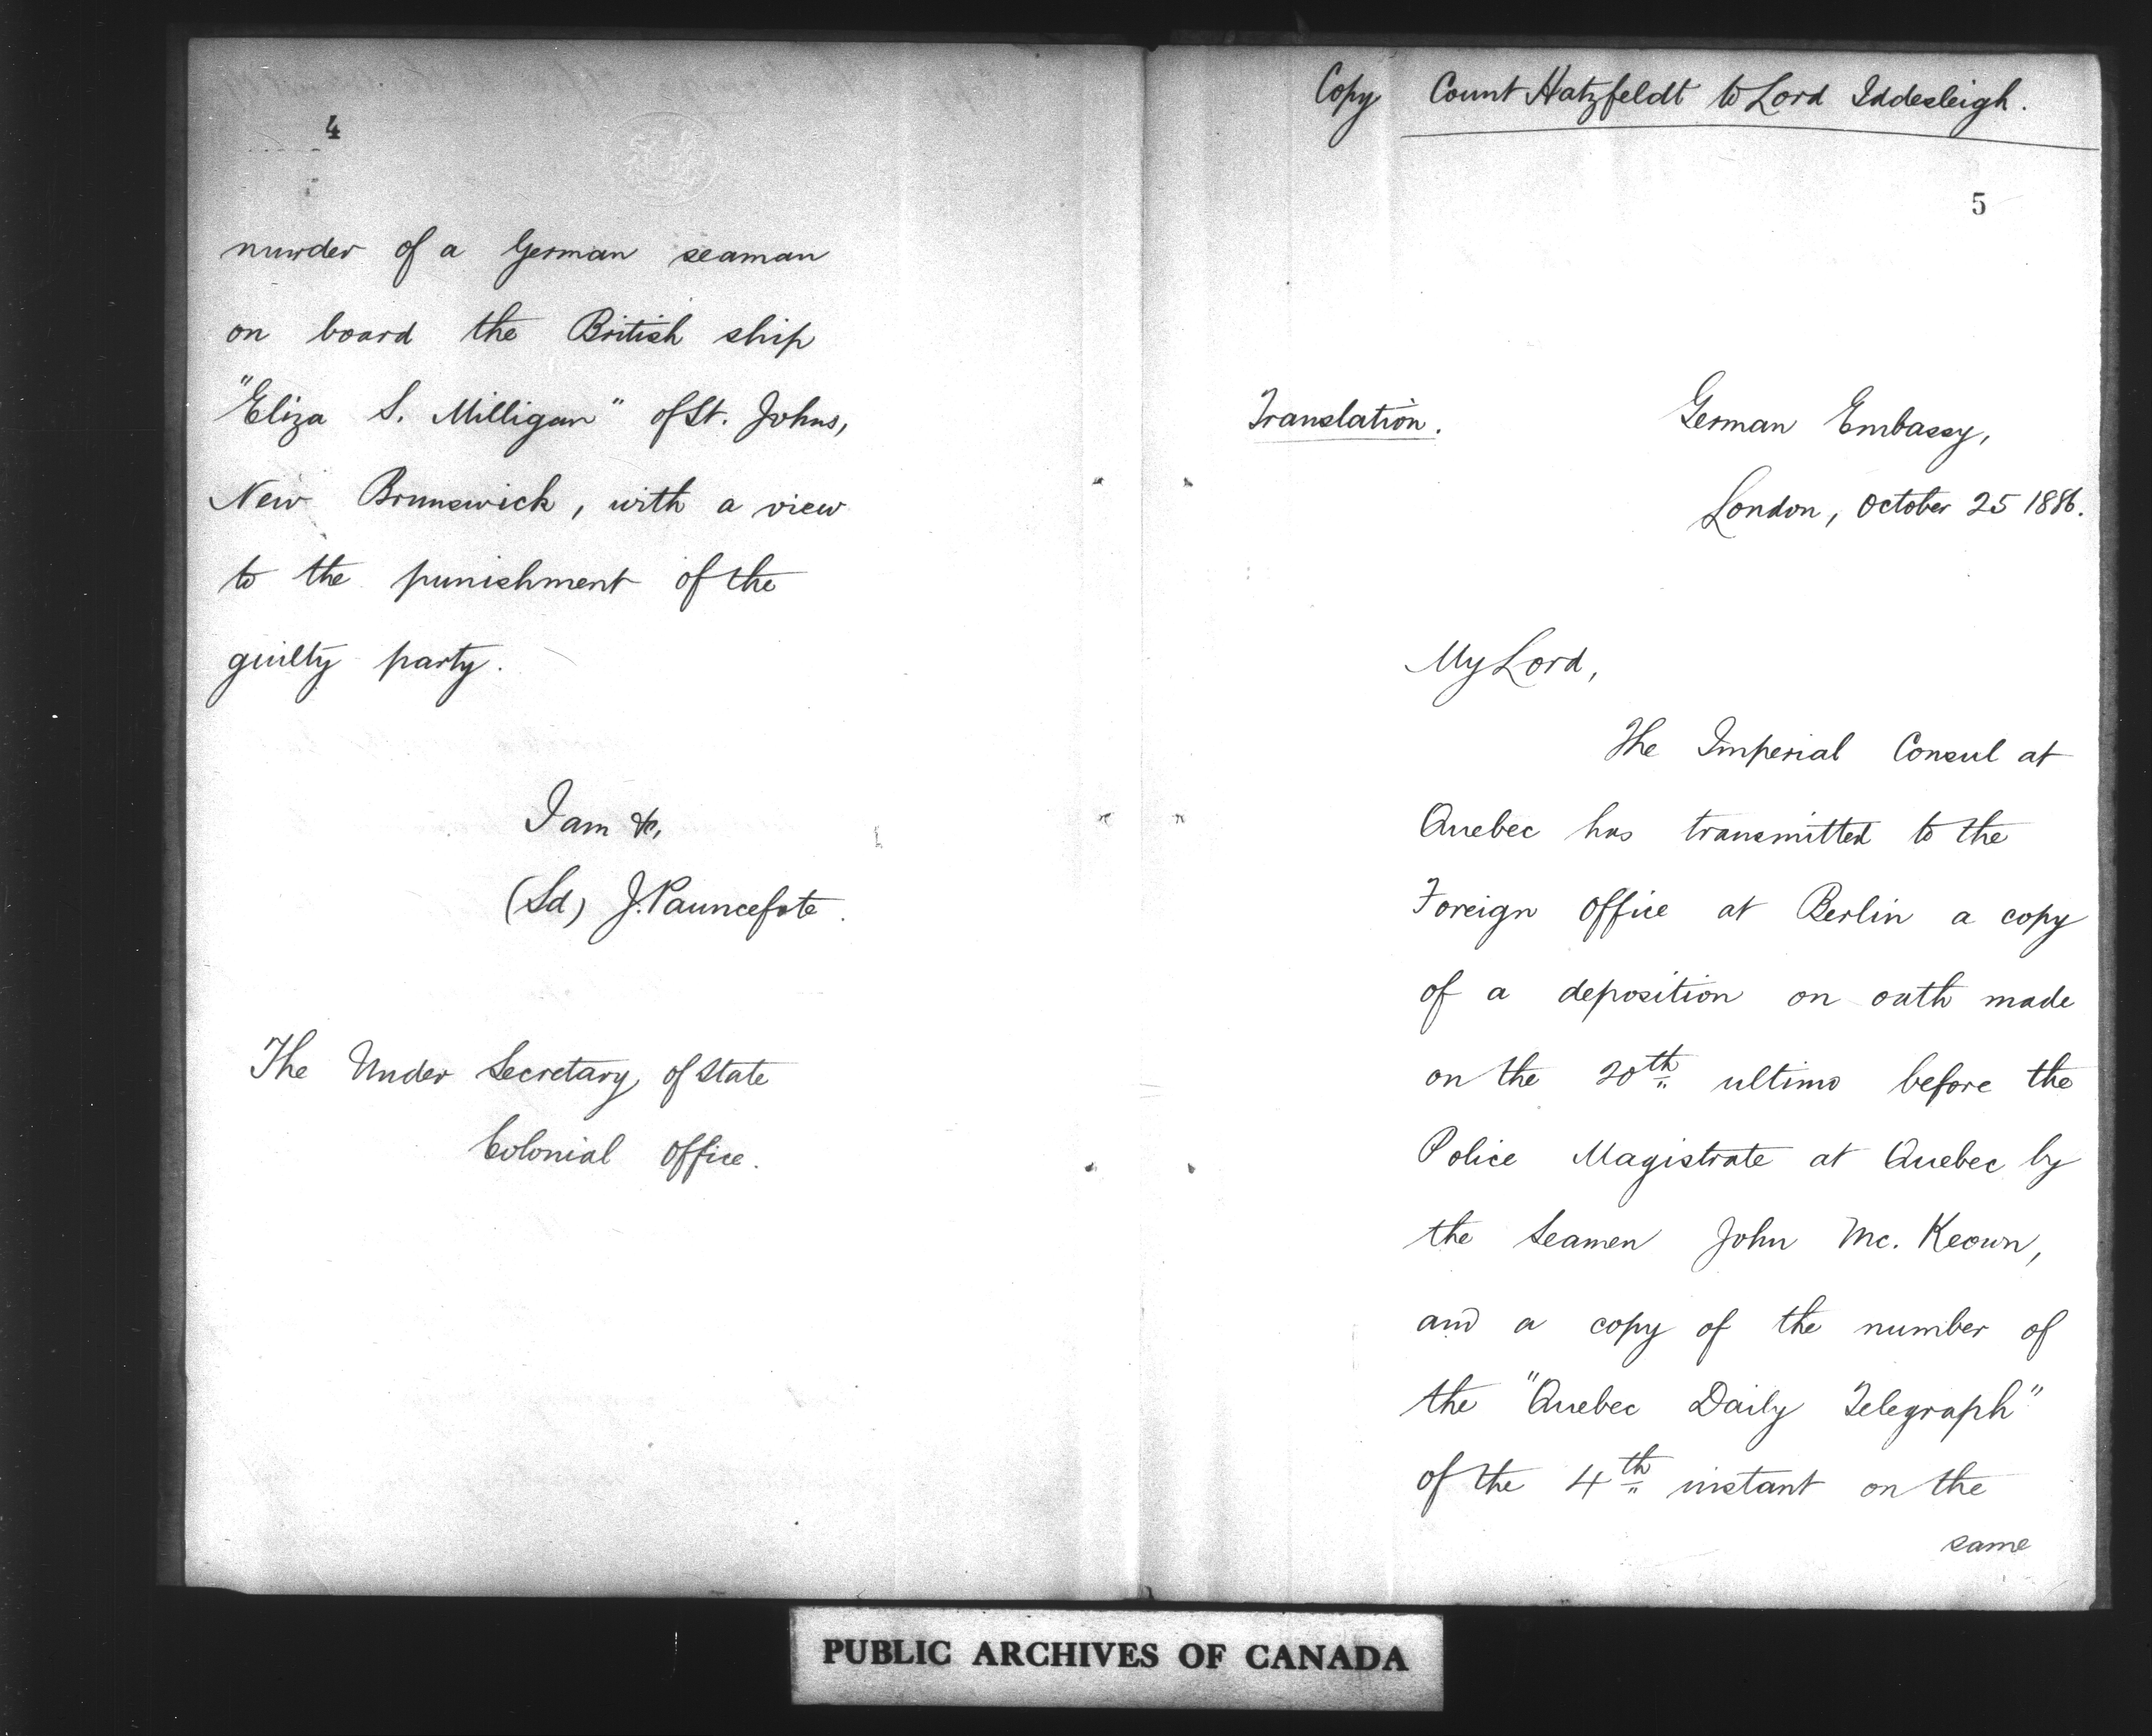 4
murder of a German seaman
on board the British ship
"Eliza S. Milligan" of St. Johns,
New Brunswick, with a view
to the punishment of the
guilty party.
I am &c,
(Sd) J. Pauncefote.
The Under Secretary of State
Colonial Office.
Copy Count Hatzfeldt to Lord Iddesleigh.
5
Translation. German Embassy,
London, October 25 1886.
My Lord,
The Imperial Consul at
Quebec has transmitted to the
Foreign Office at Berlin a copy
of a deposition on oath made
on the 20th ultimo before the
Police Magistrate at Quebec by
the Seamen John Mc. Keown,
and a copy of the number of
the "Quebec Daily Telegraph"
of the 4th instant on the
same
PUBLIC ARCHIVES OF CANADA